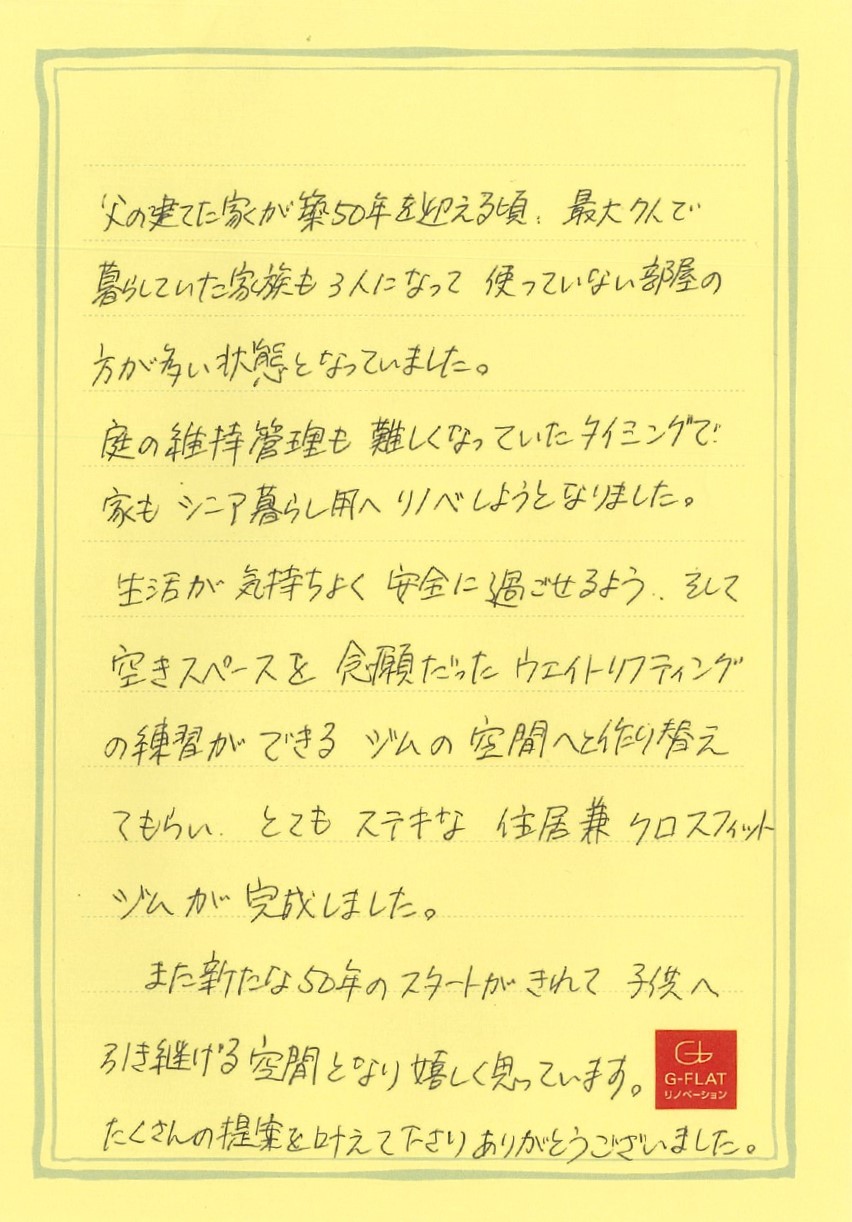 父の建てた家が築50年を迎える頃、最大7人で
暮らしていた家族も3人になって 使っていない部屋の
方が多い状態となっていました。
庭の維持管理も 難しくなっていたタイミングで
家も シニア暮らし用へ リノベしようとなりました。
生活が 気持ちよく 安全に 過ごせるよう、そして
空きスペースを 念願だった ウエイトリフティング
の練習が できる ジムの 空間へと作り替え
てもらい、とても ステキな 住居兼 クロスフィット
ジムが 完成しました。
また新たな50年の スタートが きれて 子供へ
引き継げる 空間となり 嬉しく思っています。
G-FLAT
リノベーション
たくさんの提案を叶えて下さり ありがとうございました。